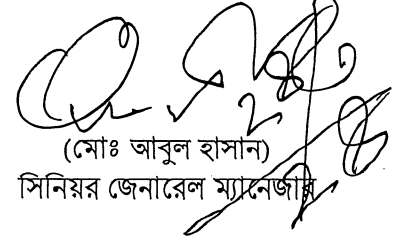 (মোঃ আবুল হাসান)
সিনিয়র জেনারেল ম্যানেজার